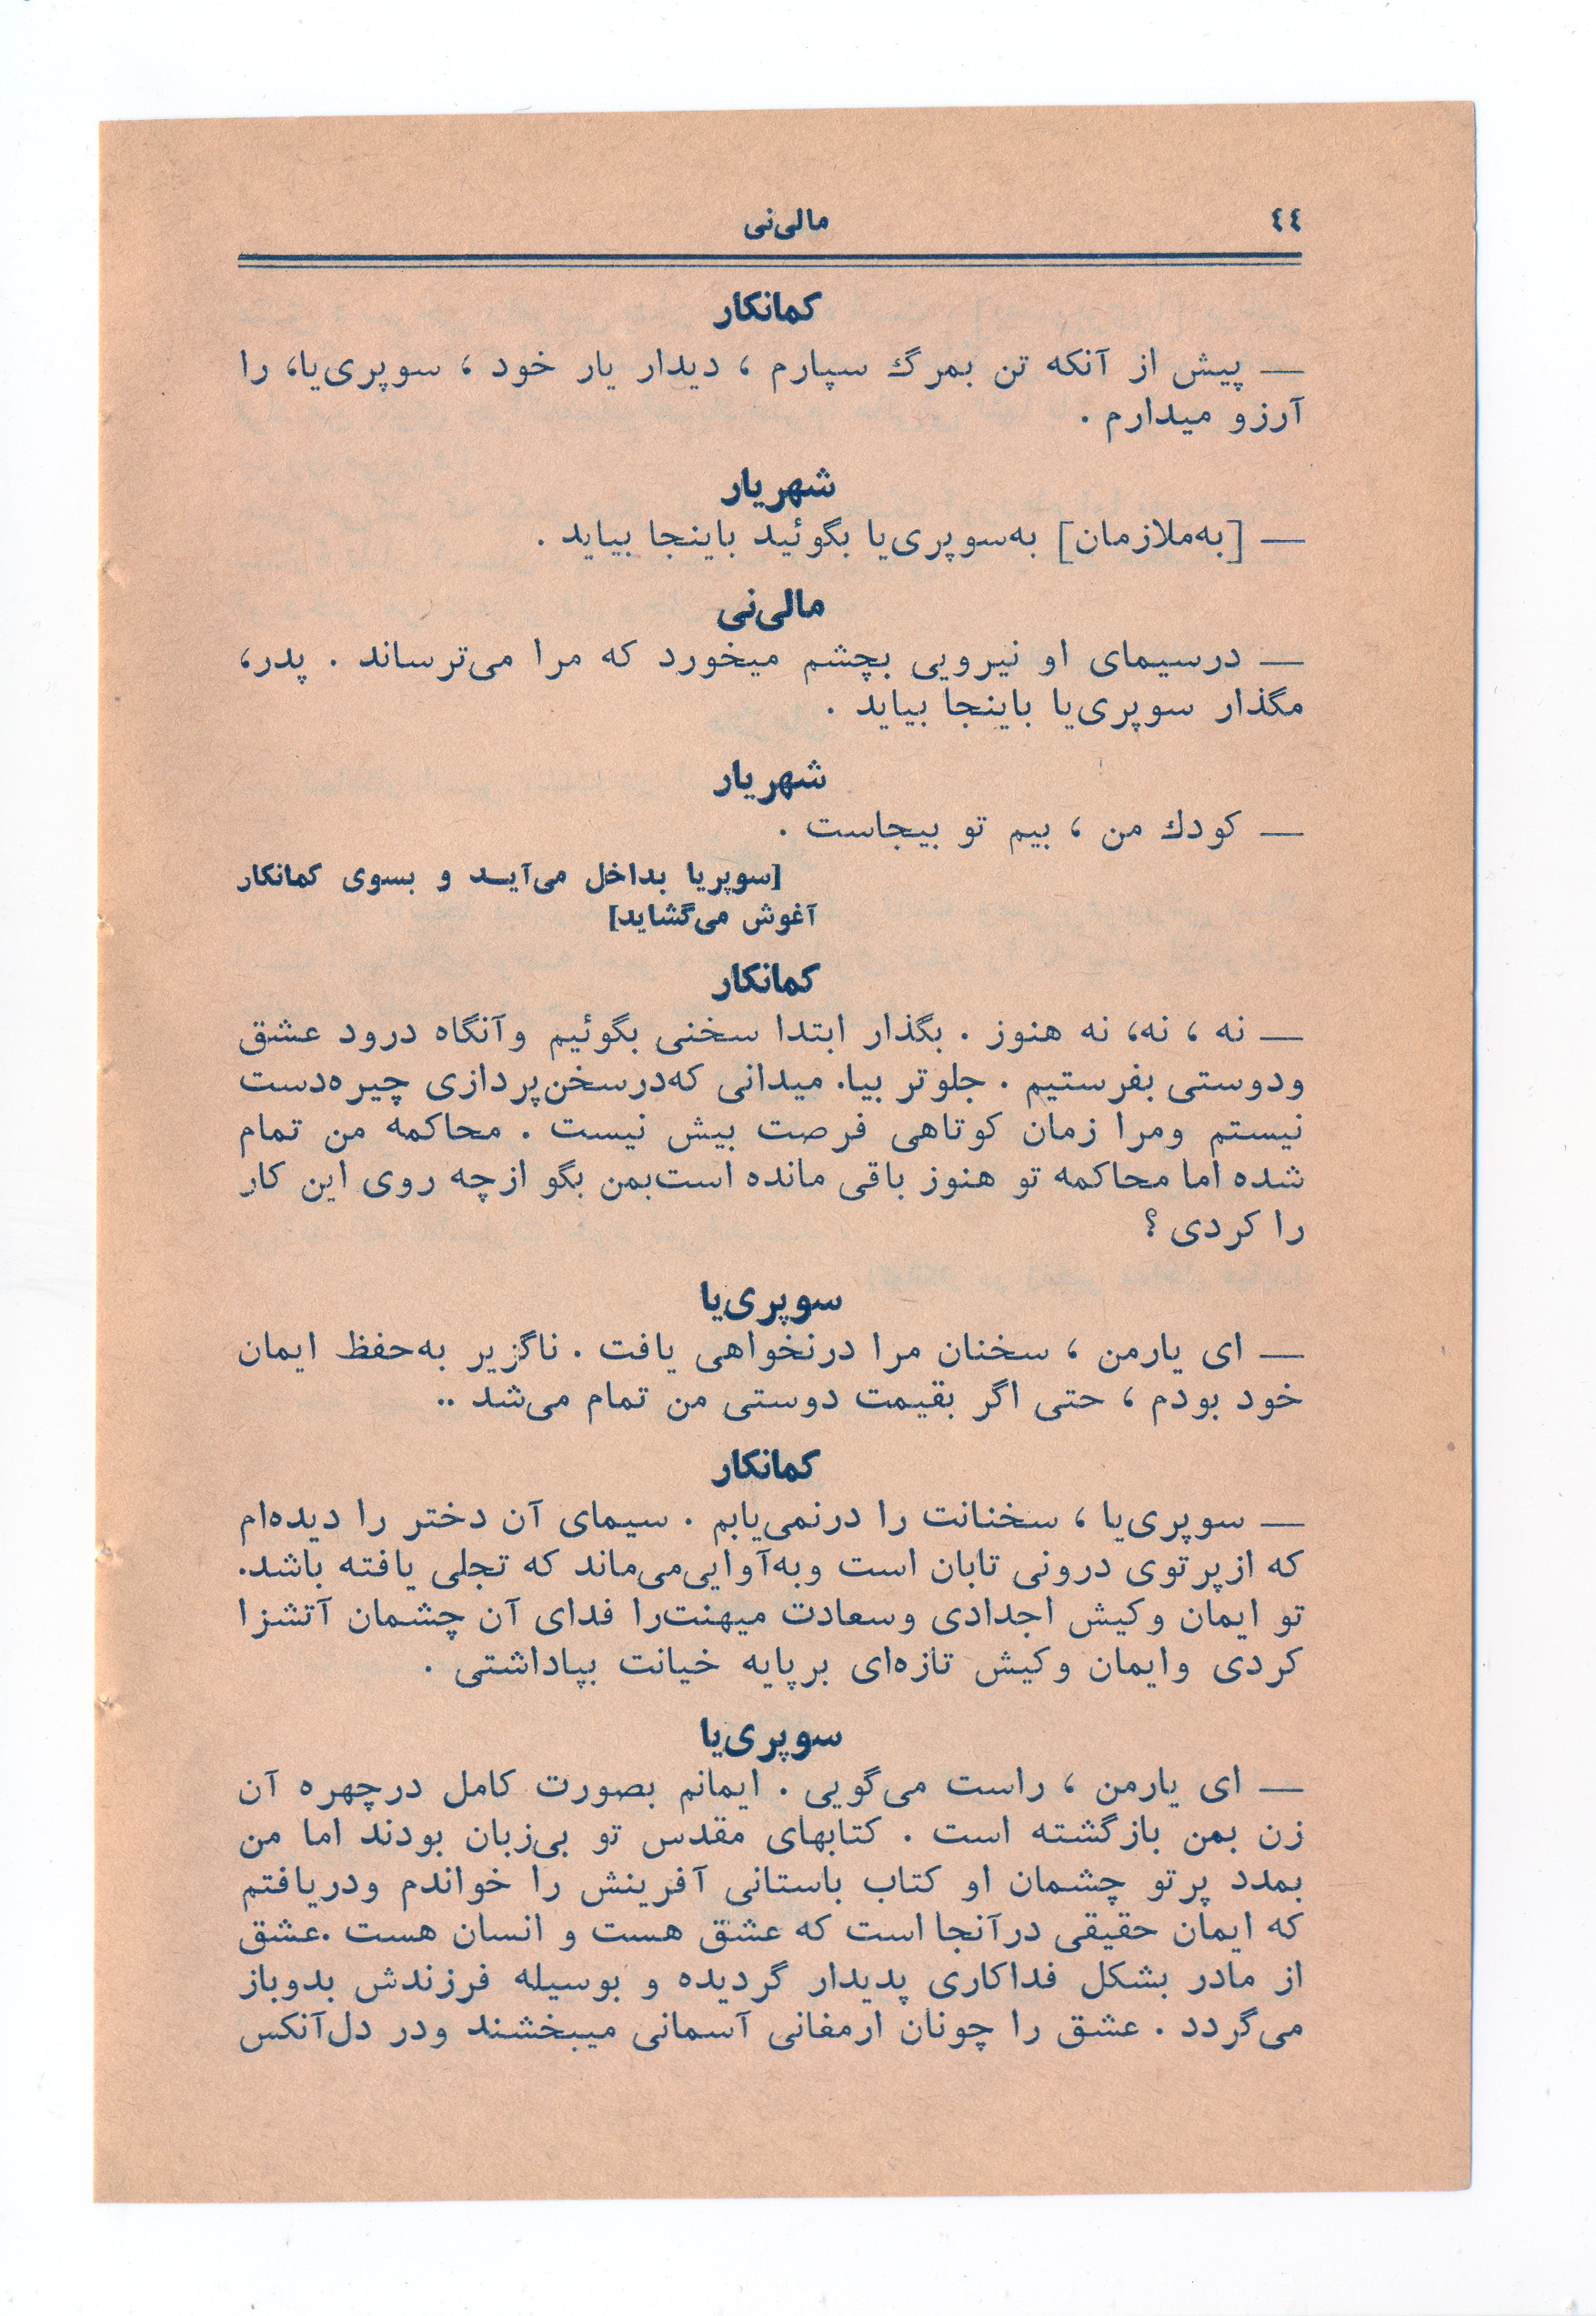 ٤٤
مالی‌نی
کمانکار
— پیش از آنکه تن بمرگ سپارم ، دیدار یار خود ، سوپری‌یا، را
آرزو میدارم .
شهریار
— [به‌ملازمان] به‌سوپری‌یا بگوئید باینجا بیاید .
مالی‌نی
— درسیمای او نیرویی بچشم میخورد که مرا می‌ترساند . پدر،
مگذار سوپری‌یا باینجا بیاید .
شهریار
— کودك من ، بیم تو بیجاست .
[سوپریا بداخل می‌آیـد و بسوی کمانکار
آغوش می‌گشاید]
کمانکار
— نه ، نه، نه هنوز . بگذار ابتدا سخنی بگوئیم وآنگاه درود عشق
ودوستی بفرستیم . جلوتر بیا. میدانی که‌درسخن‌پردازی چیره‌دست
نیستم ومرا زمان کوتاهی فرصت بیش نیست . محاکمه من تمام
شده اما محاکمه تو هنوز باقی مانده است‌بمن بگو ازچه روی این کار
را کردی ؟
سوپری‌یا
— ای یارمن ، سخنان مرا درنخواهی یافت . ناگزیر به‌حفظ ایمان
خود بودم ، حتی اگر بقیمت دوستی من تمام می‌شد ..
کمانکار
— سوپری‌یا ، سخنانت را درنمی‌یابم . سیمای آن دختر را دیده‌ام
که ازپرتوی درونی تابان است وبه‌آوایی‌می‌ماند که تجلی یافته باشد.
تو ایمان وکیش اجدادی وسعادت میهنت‌را فدای آن چشمان آتشزا
کردی وایمان وکیش تازه‌ای برپایه خیانت بپاداشتی .
سوپری‌یا
— ای یارمن ، راست می‌گویی . ایمانم بصورت کامل درچهره آن
زن بمن بازگشته است . کتابهای مقدس تو بی‌زبان بودند اما من
بمدد پرتو چشمان او کتاب باستانی آفرینش را خواندم ودریافتم
که ایمان حقیقی درآنجا است که عشق هست و انسان هست .عشق
از مادر بشکل فداکاری پدیدار گردیده و بوسیله فرزندش بدوباز
می‌گردد . عشق را چونان ارمغانی آسمانی میبخشند ودر دل‌آنکس